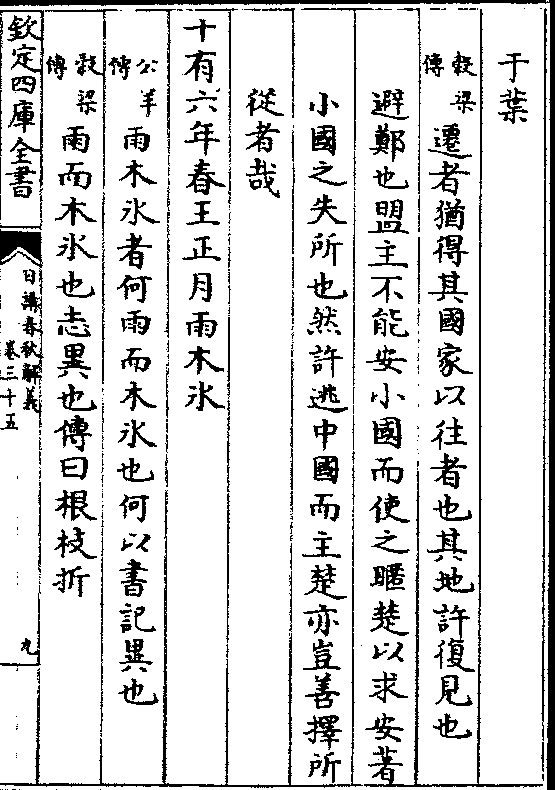 于葉
穀梁傳遷者猶得其國家以往者也其地許復見也
避鄭也盟主不能安小國而使之暱楚以求安著
小國之失所也然許逃中國而主楚亦豈善擇所
從者哉
十有六年春王正月雨木氷
公羊傳雨木氷者何雨而木氷也何以書記異也
穀梁傳雨而木氷也志異也傳曰根枝折
欽定四庫全書
日講春秋解義
卷三十五
九